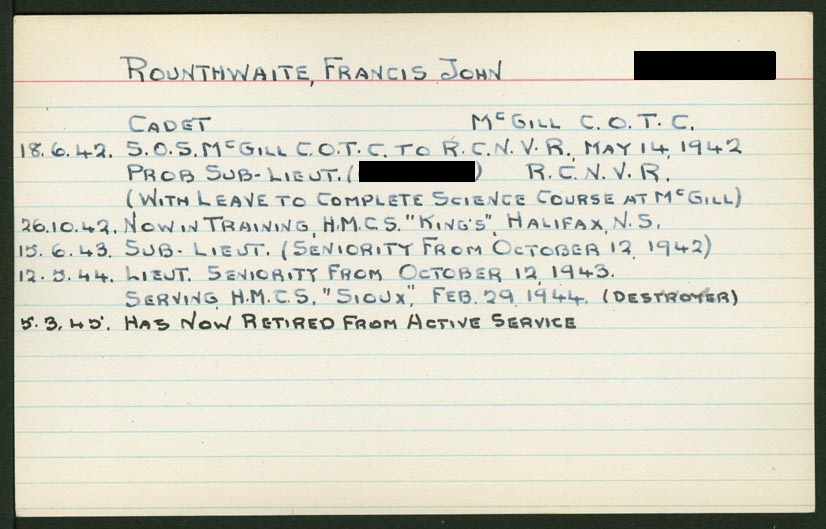 ROUNTHWAITE, FRANCIS JOHN
CADET McGILL C.O.T.C.
18.6.42. S.O.S. McGILL C.O.T.C. TO R.C.N.V.R. MAY 14, 1942
PROB SUB-LIEUT. ( ) R.C.N.V.R.
(WITH LEAVE TO COMPLETE SCIENCE COURSE AT McGILL)
26.10.42. NOW IN TRAINING, H.M.C.S. "KING'S", HALIFAX, N.S.
15.6.43. SUB-LIEUT. (SENIORITY FROM OCTOBER 12, 1942)
12.5.44. LIEUT. SENIORITY FROM OCTOBER 12, 1943.
SERVING H.M.C.S. "SIOUX", FEB. 29, 1944. (DESTROYER)
5.3.45. HAS NOW RETIRED FROM ACTIVE SERVICE